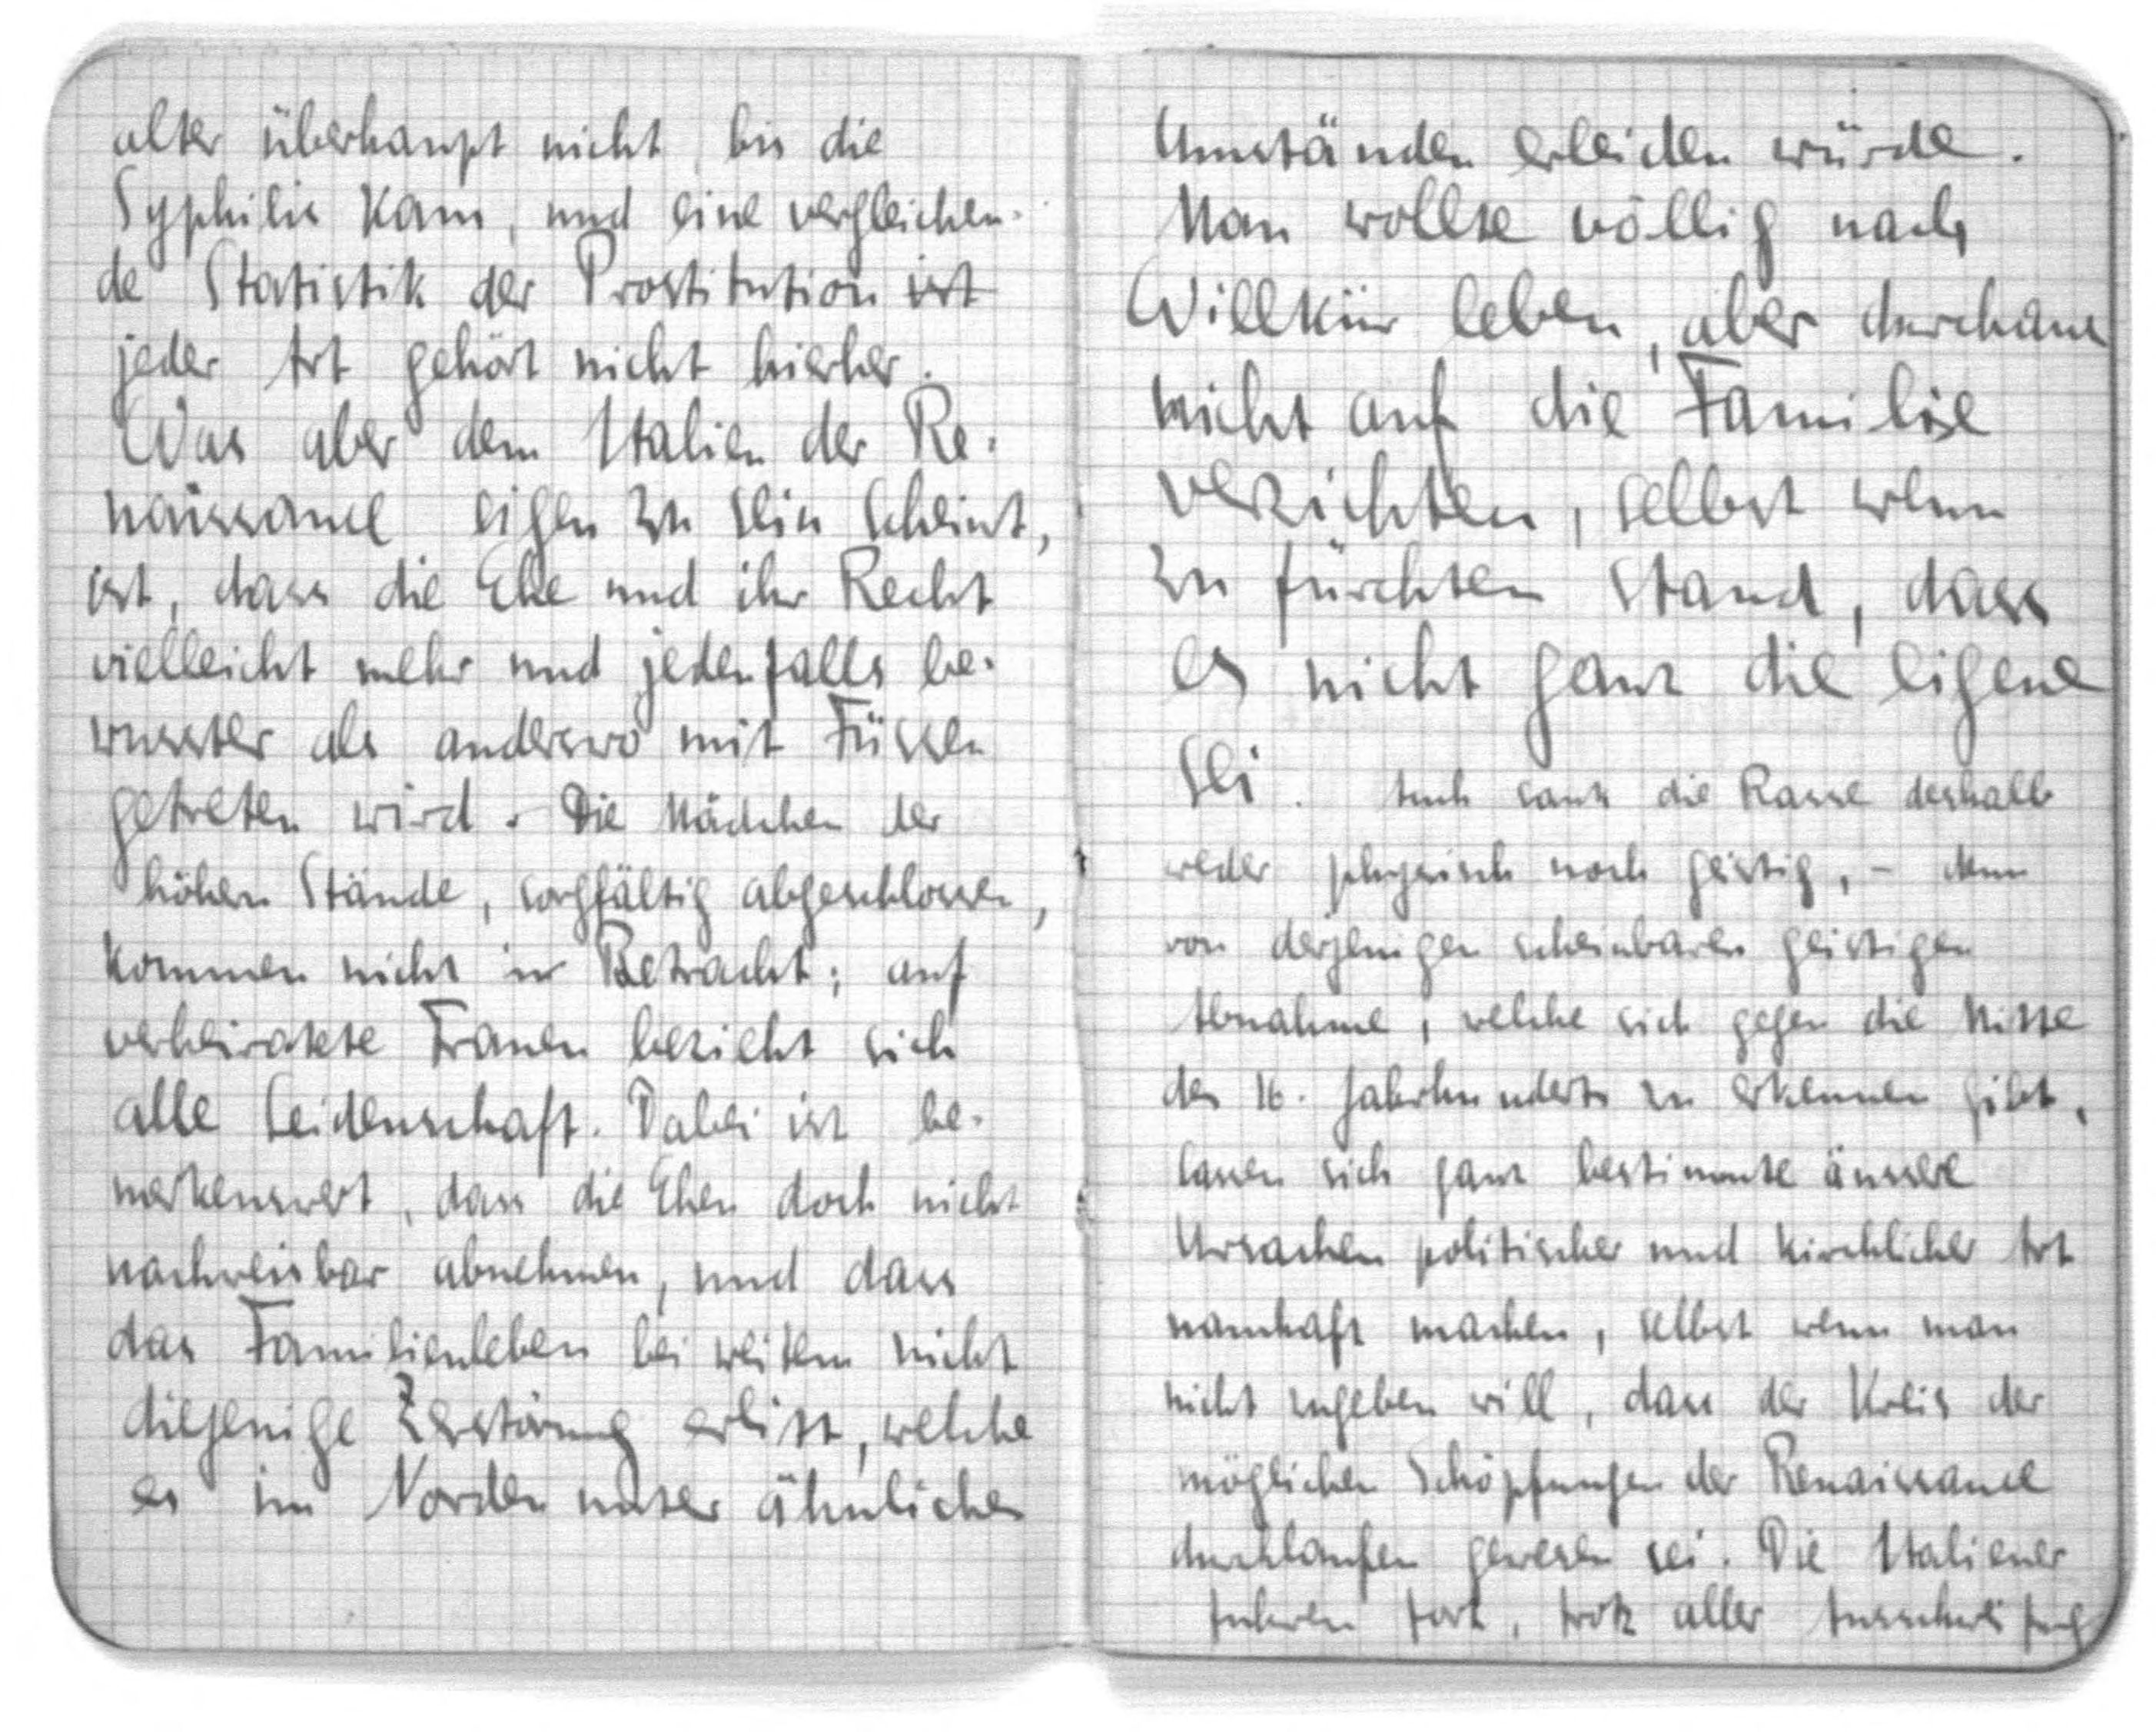 alter überhaupt nicht, bis die
Syphilis kam, und eine vergleichen-
de Statistik der Prostitution ist
jeder Art gehört nicht hierher.
Was aber dem Italien der Re-
naissance eigen zu sein scheint,
ist, dass die Ehe und ihr Recht
vielleicht mehr und jedenfalls be-
wusster als anderswo mit Füssen
getreten wird. Die Mädchen der
höhern Stände, sorgfältig abgeschlossen,
kommen nicht in Betracht; auf
verheiratete Frauen bezieht sich
alle Leidenschaft. Dabei ist be-
merkenswert, dass die Ehen doch nicht
nachweisbar abnehmen, und dass
das Familienleben bei weitem nicht
diejenige Zerstörung erlitt, welche
es im Norden unter ähnlichen
Umständen erleiden würde.
Man wollte völlig nach
Willkür leben, aber durchaus
nicht auf die Familie
verzichten, selbst wenn
zu fürchten stand, dass
es nicht ganz die eigene
sei. Auch sank die Rasse deshalb
weder physisch noch geistig, - denn
von derjenigen scheinbaren geistigen
Abnahme, welche sich gegen die Mitte
des 16. Jahrhunderts zu erkennen gibt,
lassen sich ganz bestimmte äussere
Ursachen politischer und kirchlicher Art
namhaft machen, selbst wenn man
nicht zugeben will, dass der Kreis der
möglichen Schöpfungen der Renaissance
durchlaufen gewesen sei. Die Italiener
fuhren fort, trotz aller Ausschweifung